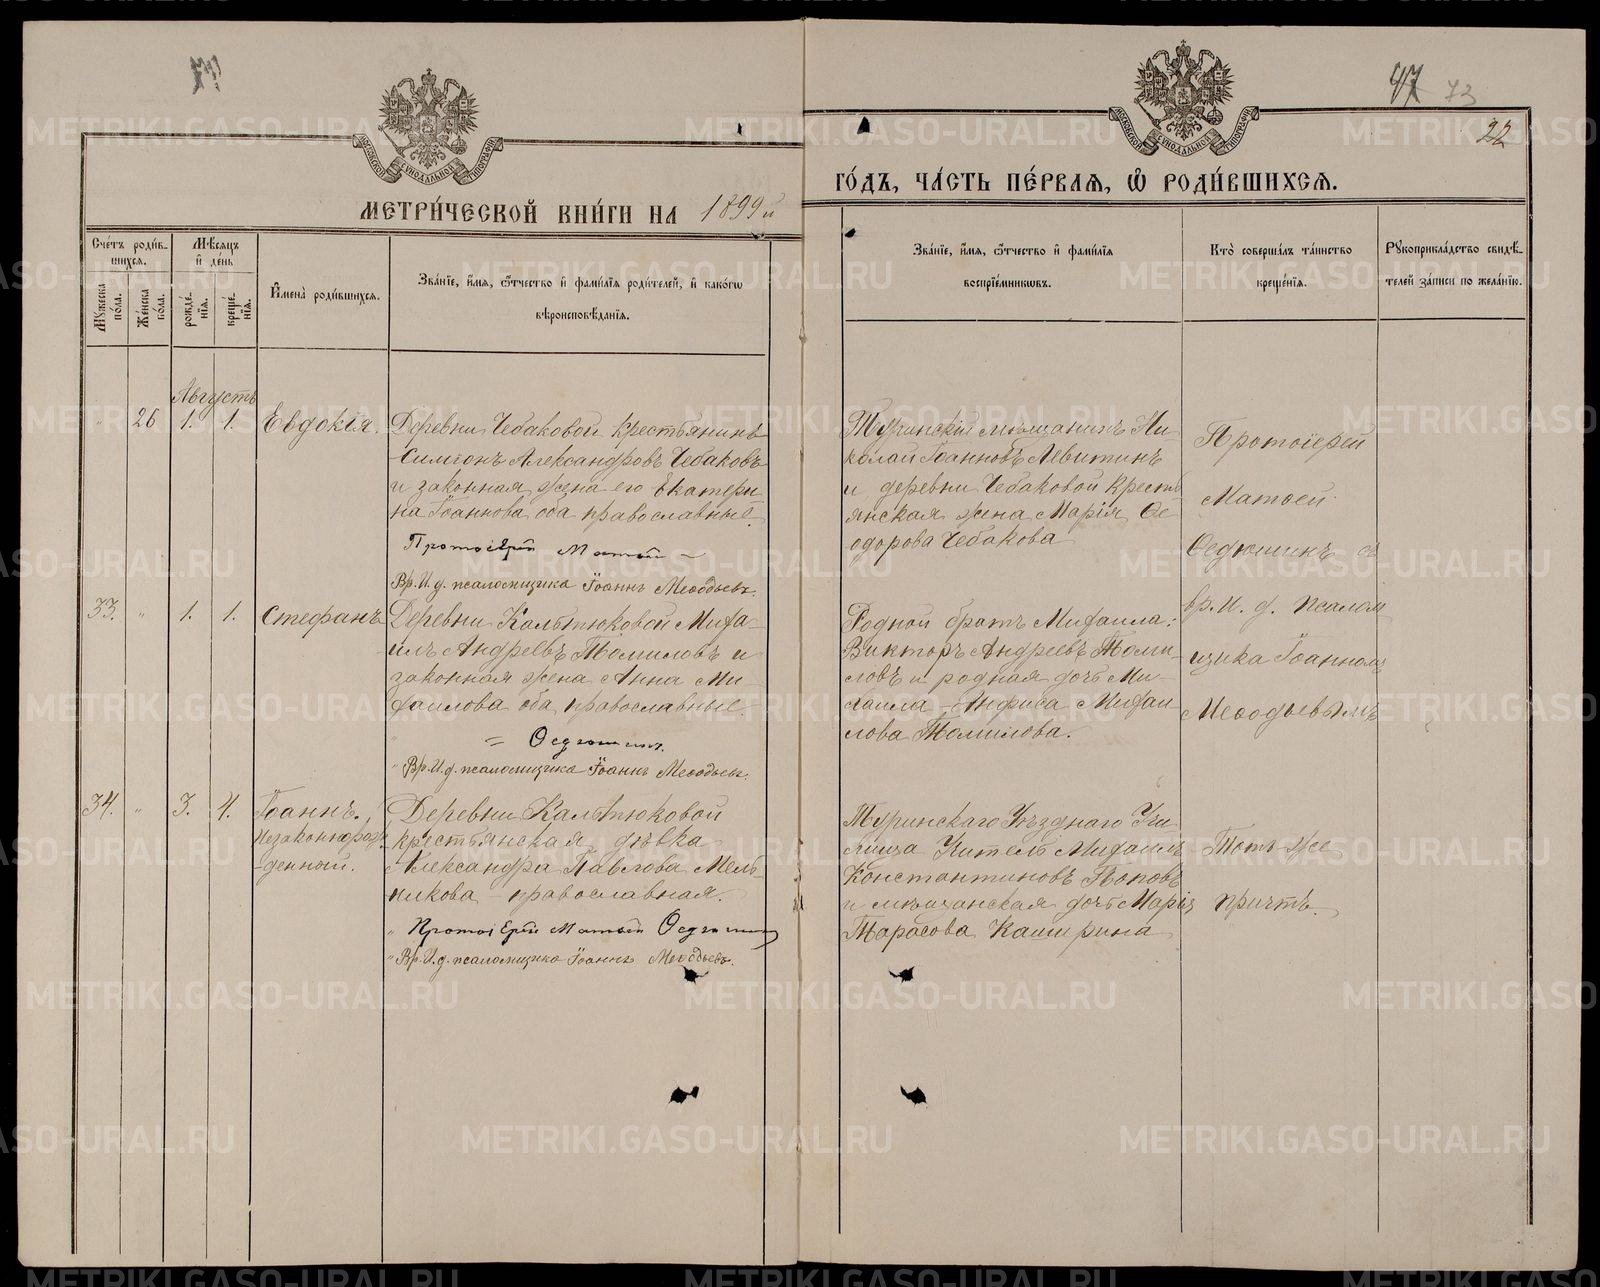 47 73
22
МЕТРИ́ЧЕСКОЙ КНИ́ГИ НА 1899й ГО́ДЪ, ЧА́СТЬ ПЕ́РВАѦ, Ѽ РОДИ́ВШИХСѦ.
Сче́тъ роди́в-
шихсѧ.
Мѣ́сѧцъ
и҆ де́нь
Мꙋжеска
по́ла.
Же́нска
по́ла.
рожде́-
нїѧ.
креще́-
нїѧ.
И҆мена̀ роди́вшихсѧ.
Зва́нїе, и҆́мѧ, ѻ҆́тчество и҆ фами́лїѧ роди́телей, и҆ како́гѡ
вѣроисповѣ́данїѧ.
Зва́нїе, и҆́мѧ, ѻ҆́тчество и҆ фами́лїѧ
воспрїе́мникѡвъ.
Кто̀ соверша́лъ та́инство
креще́нїѧ.
Рꙋкоприкла́дство свидѣ́-
телей за́писи по жела́нїю.
Августъ
" 26 1. 1. Евдокія.
Деревни Чебаковой крестьянинъ
Симеонъ Александровъ Чебаковъ
и законная жена его Екатери-
на Іоаннова оба православные.
Протоіерей Матѳей
Вр. И. д. псаломщика Іоаннъ Меѳодьевъ.
Туринскій мѣщанинъ Ни-
колай Іоанновъ Левитинъ
и деревни Чебаковой кресть-
янская жена Марія Ѳе-
одорова Чебакова
Протоіерей
Матѳей
Ѳедюшинъ съ
вр. И. д. псалом
щика Іоанномъ
Меѳодьевымъ
33. " 1. 1. Стефанъ
Деревни Кальтюковой Миха-
илъ Андреевъ Томиловъ и
законная жена Анна Ми-
хаилова оба православные.
= Ѳедюшинъ.
" Вр. И. д. псаломщика Іоаннъ Меѳодьевъ.
Родной братъ Михаила:
Викторъ Андреевъ Томи-
ловъ и родная дочь Ми-
хаила - Анфиса Михаи-
лова Томилова.
34. " 3. 4. Іоаннъ,
незаконнорож-
денной.
Деревни Кальтюковой
крестьянская дѣвка
Александра Павлова Мель-
никова - православная.
" Протоіерей Матѳей Ѳедюшинъ
" Вр. И. д. псаломщика Іоаннъ Меѳодьевъ.
Туринскаго Уѣзднаго Учи-
лища Учитель Михаилъ
Константиновъ Поповъ
и мѣщанская дочь Марія
Тарасова Каширина
Тотъ же
причтъ.